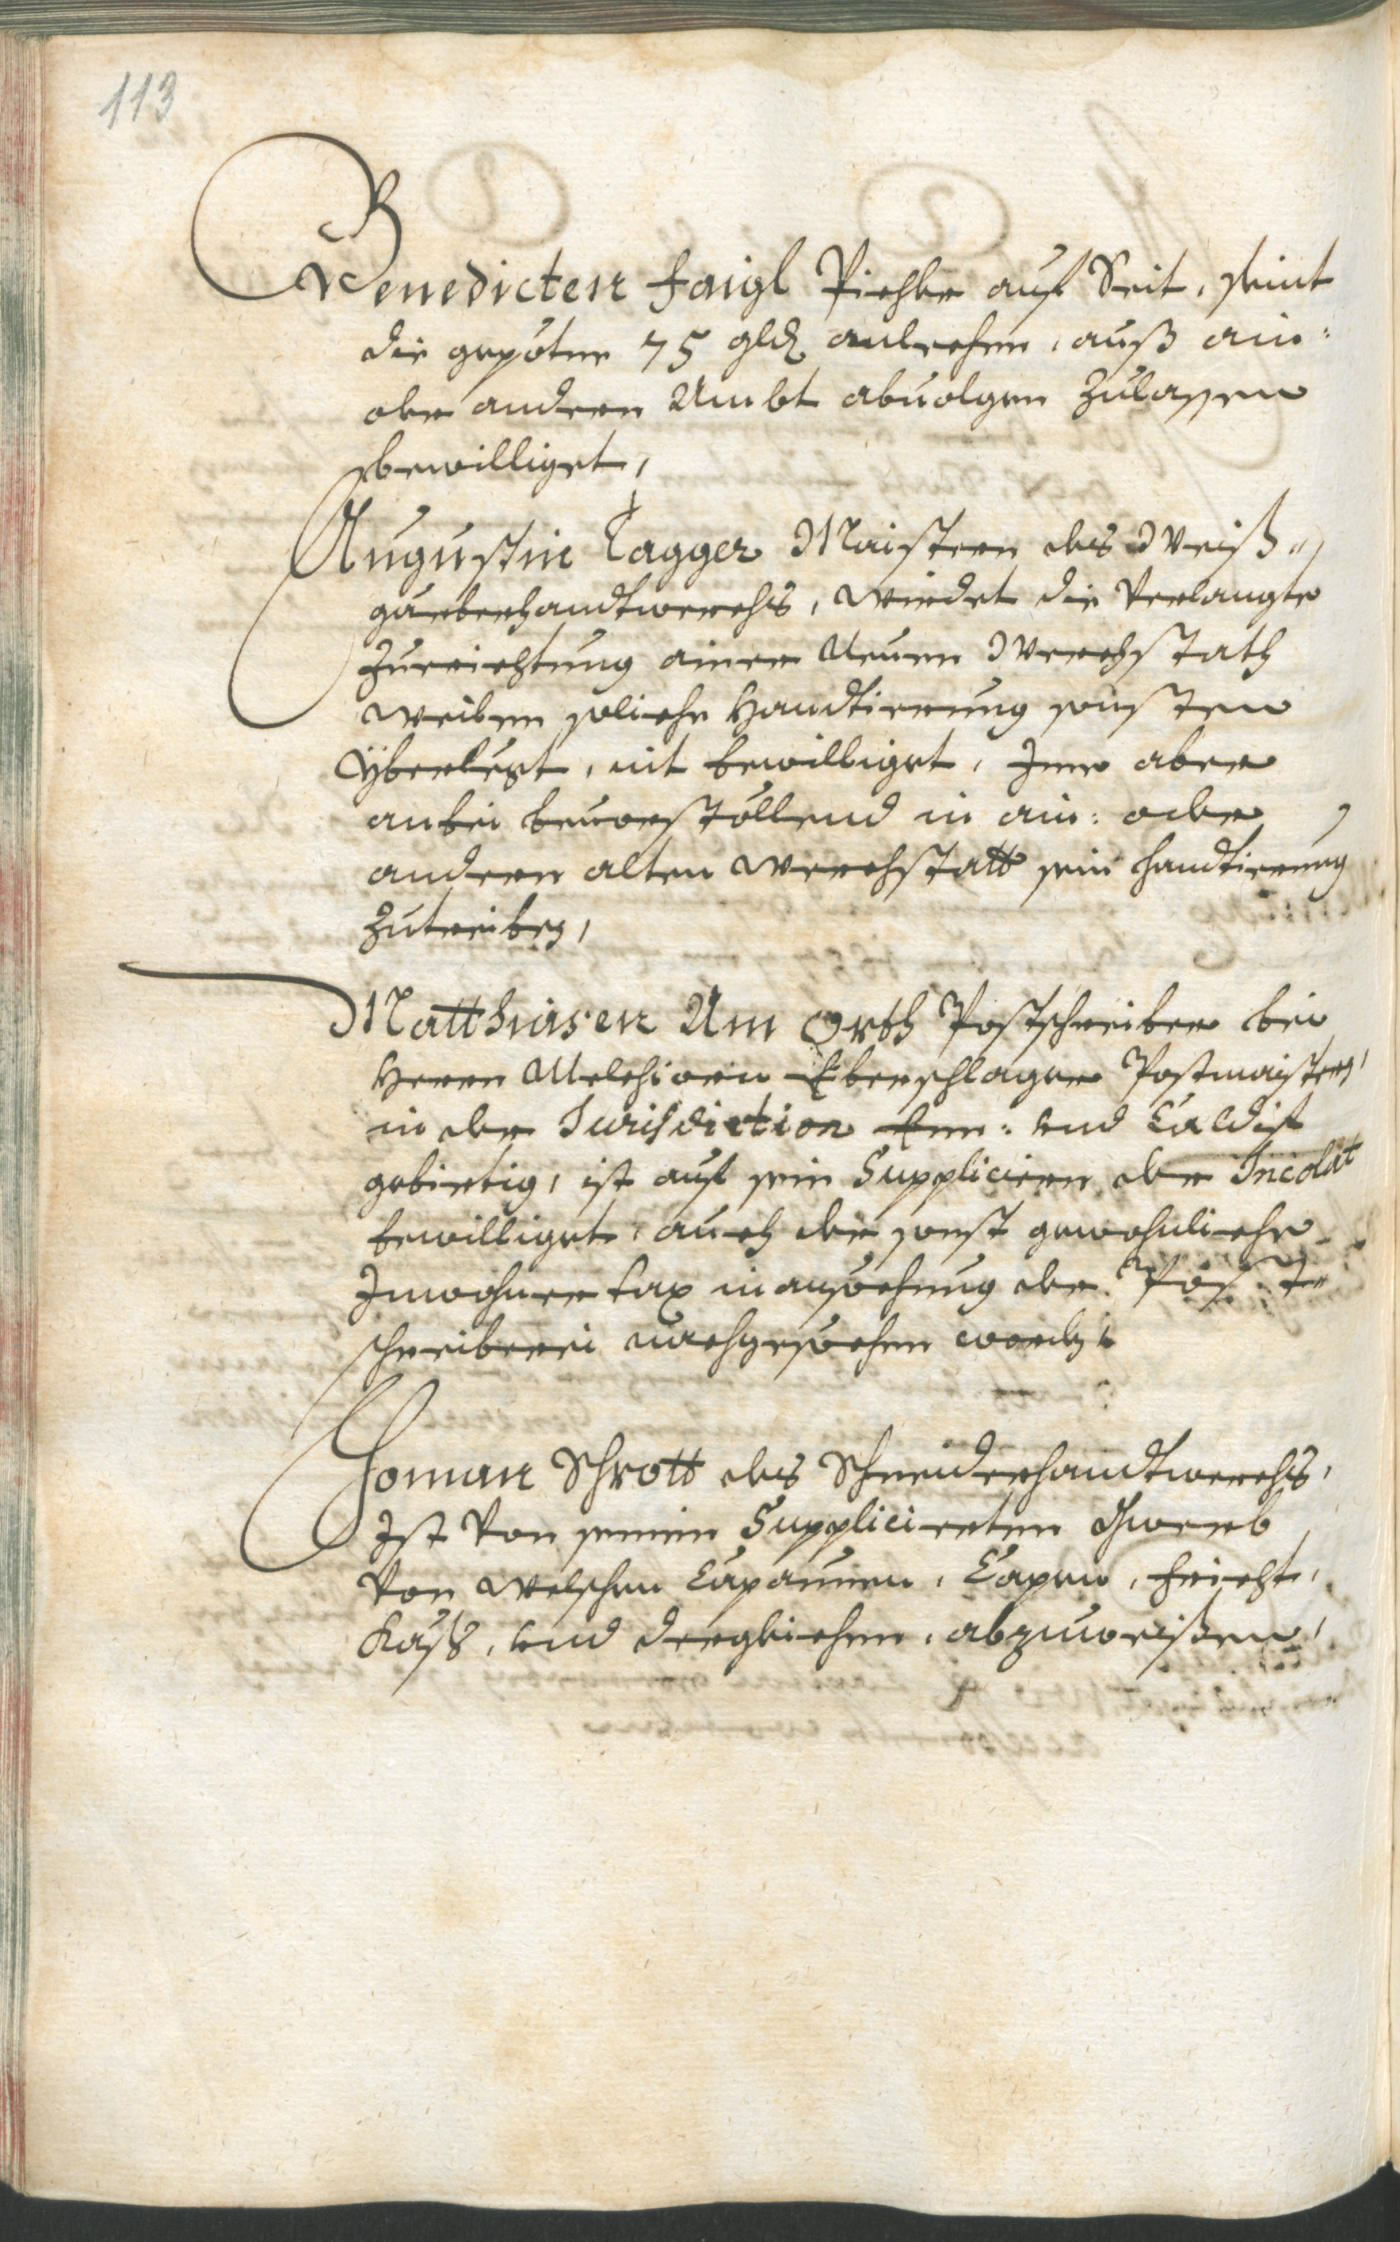 113
Benedicten Faigl Pichler auf Seit, seint
die gepotne 75 gld anlechen, auß ain:
oder andern Ambt abuolgen zulassen
bewilliget,
Augustin Tagger Maistern des Weiß-
garberhandtwerchs, wirdet die verlangte
Zuerichtung ainer Neuen Werchstath
weilen solliche Handtierung sonsten
yberlegt, nit bewilliget, Jme aber
anbei beuorstöllend in ain: oder
andern alten Werchstatt sein handtierung
zutreiben,
Matthiasen Am Orth Postschreiber bei
Herrn Melchiorn Eberschlager Postmaistern,
in der Jurisdiction Enn: vnd Caldif
gebirtig, ist auf sein Suppliciern der Incolat
bewilliget, auch die sonst gewohnliche
Inwohner tax in ansechung der Post-
schreiberei nachgesechen worden,
Roman Schrott des Schneiderhandtwerchs,
Ist von seinem Supplicierten Gwerb
von welschen Capaunen, Capen, Fricht,
Käß, vnd dergleichen, abzuweisen,